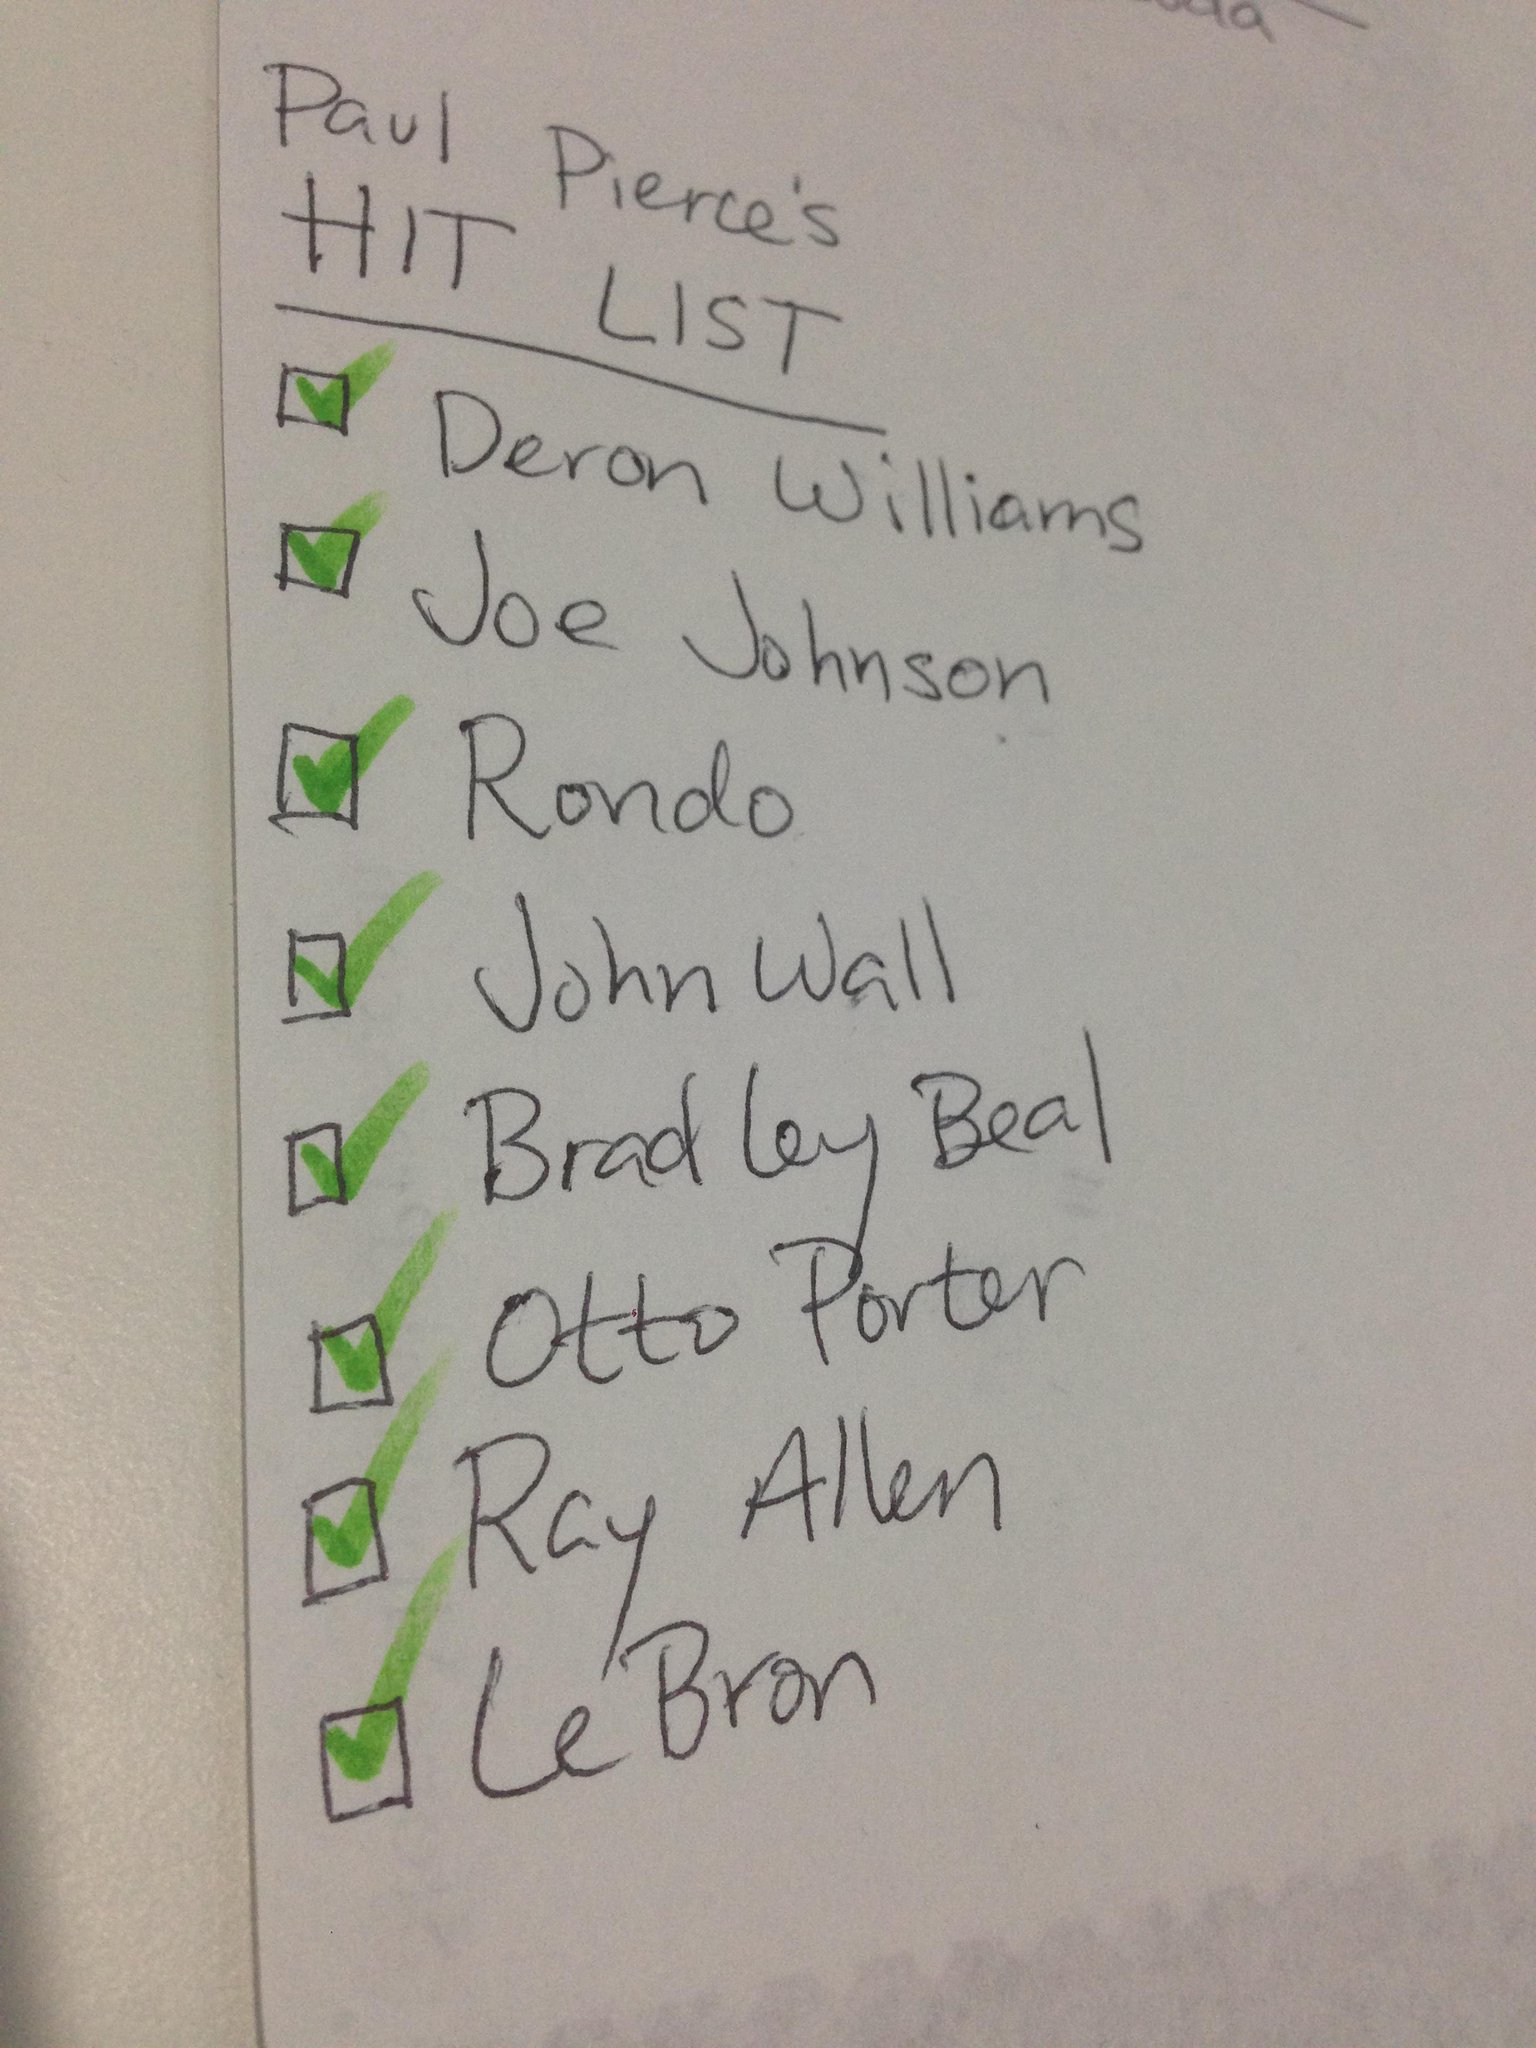 Paul Pierce's
HIT LIST
Deron Williams
Joe Johnson
Rondo
John Wall
Bradley Beal
Otto Porter
Ray Allen
LeBron